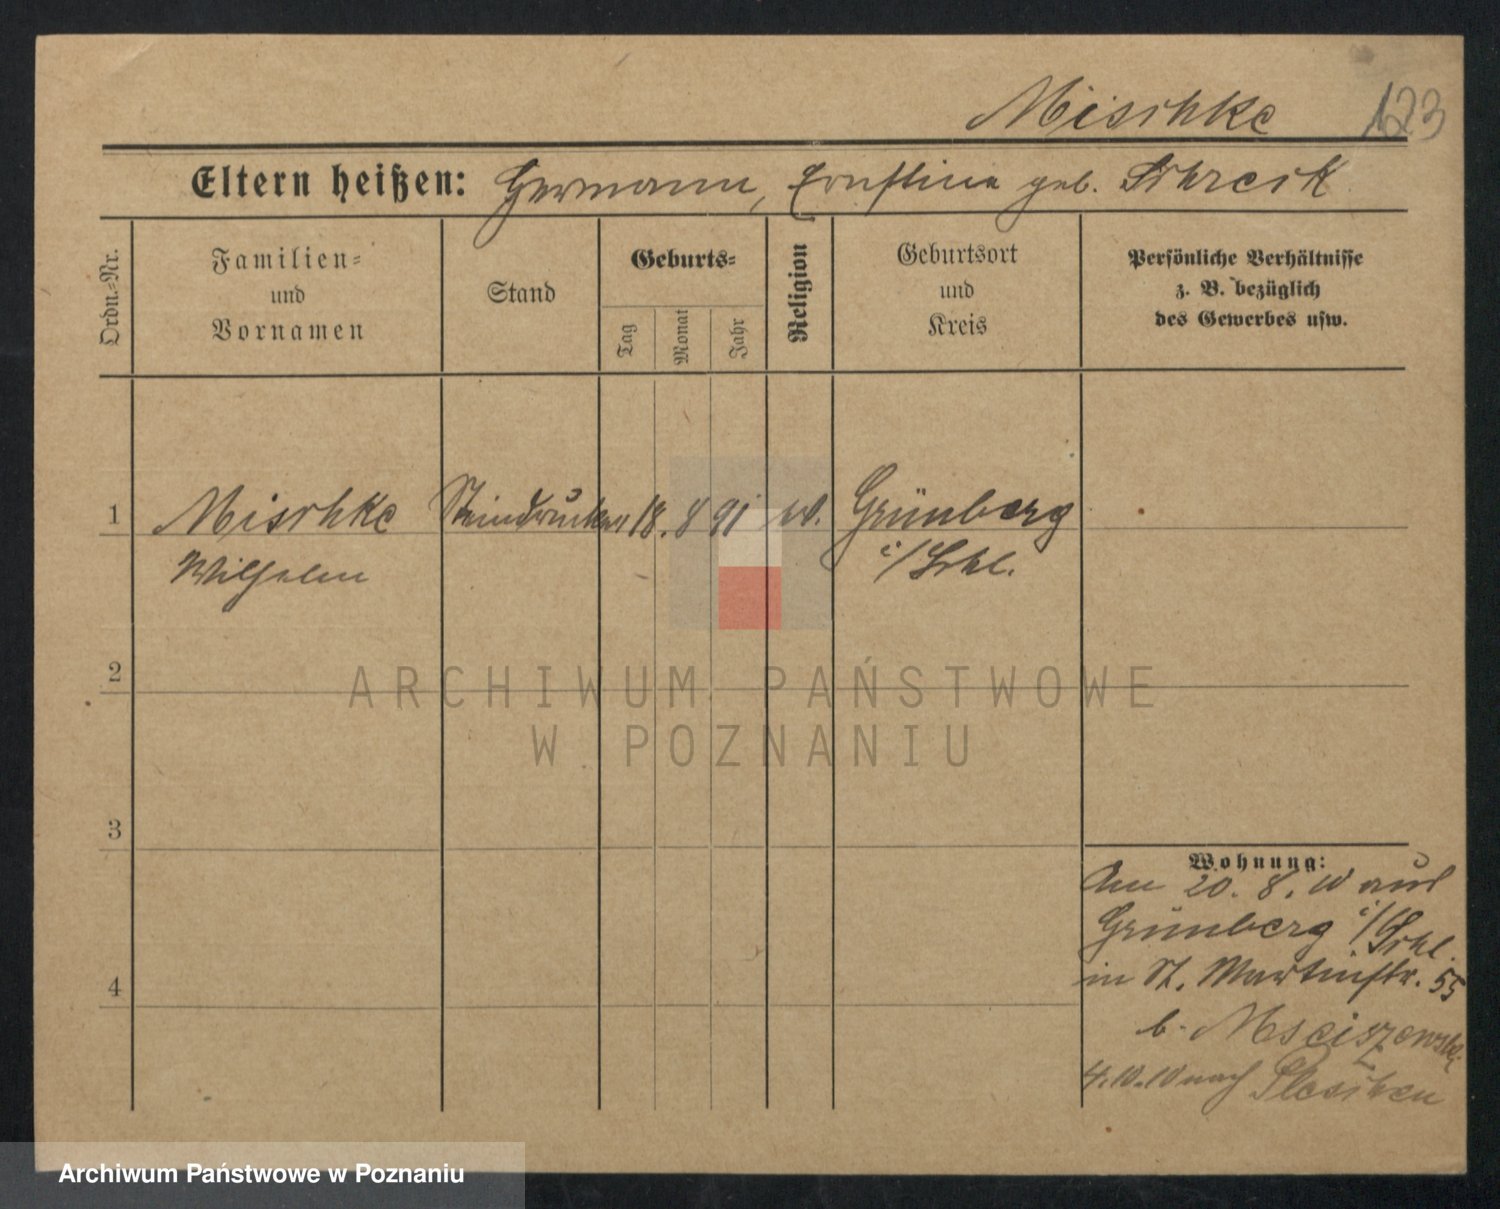 Mischke 123
Eltern heißen: Hermann, Ernstine geb. Schreck
Ordn.-Nr.
Familien- und Vornamen
Stand
Geburts-
Tag
Monat
Jahr
Religion
Geburtsort und Kreis
Persönliche Verhältnisse
z. B. bezüglich
des Gewerbes usw.
1 Mischke Steindrucker 18. 8 91 Grünberg
Wilhelm i/Schl.
2
3
4
Wohnung:
Am 20. 8. 10 aus
Grünberg i/Schl.
in St. Martinstr. 55
b. Msciszewski
4.10.10 nach Pleschen
ARCHIWUM PAŃSTWOWE
W POZNANIU
Archiwum Państwowe w Poznaniu